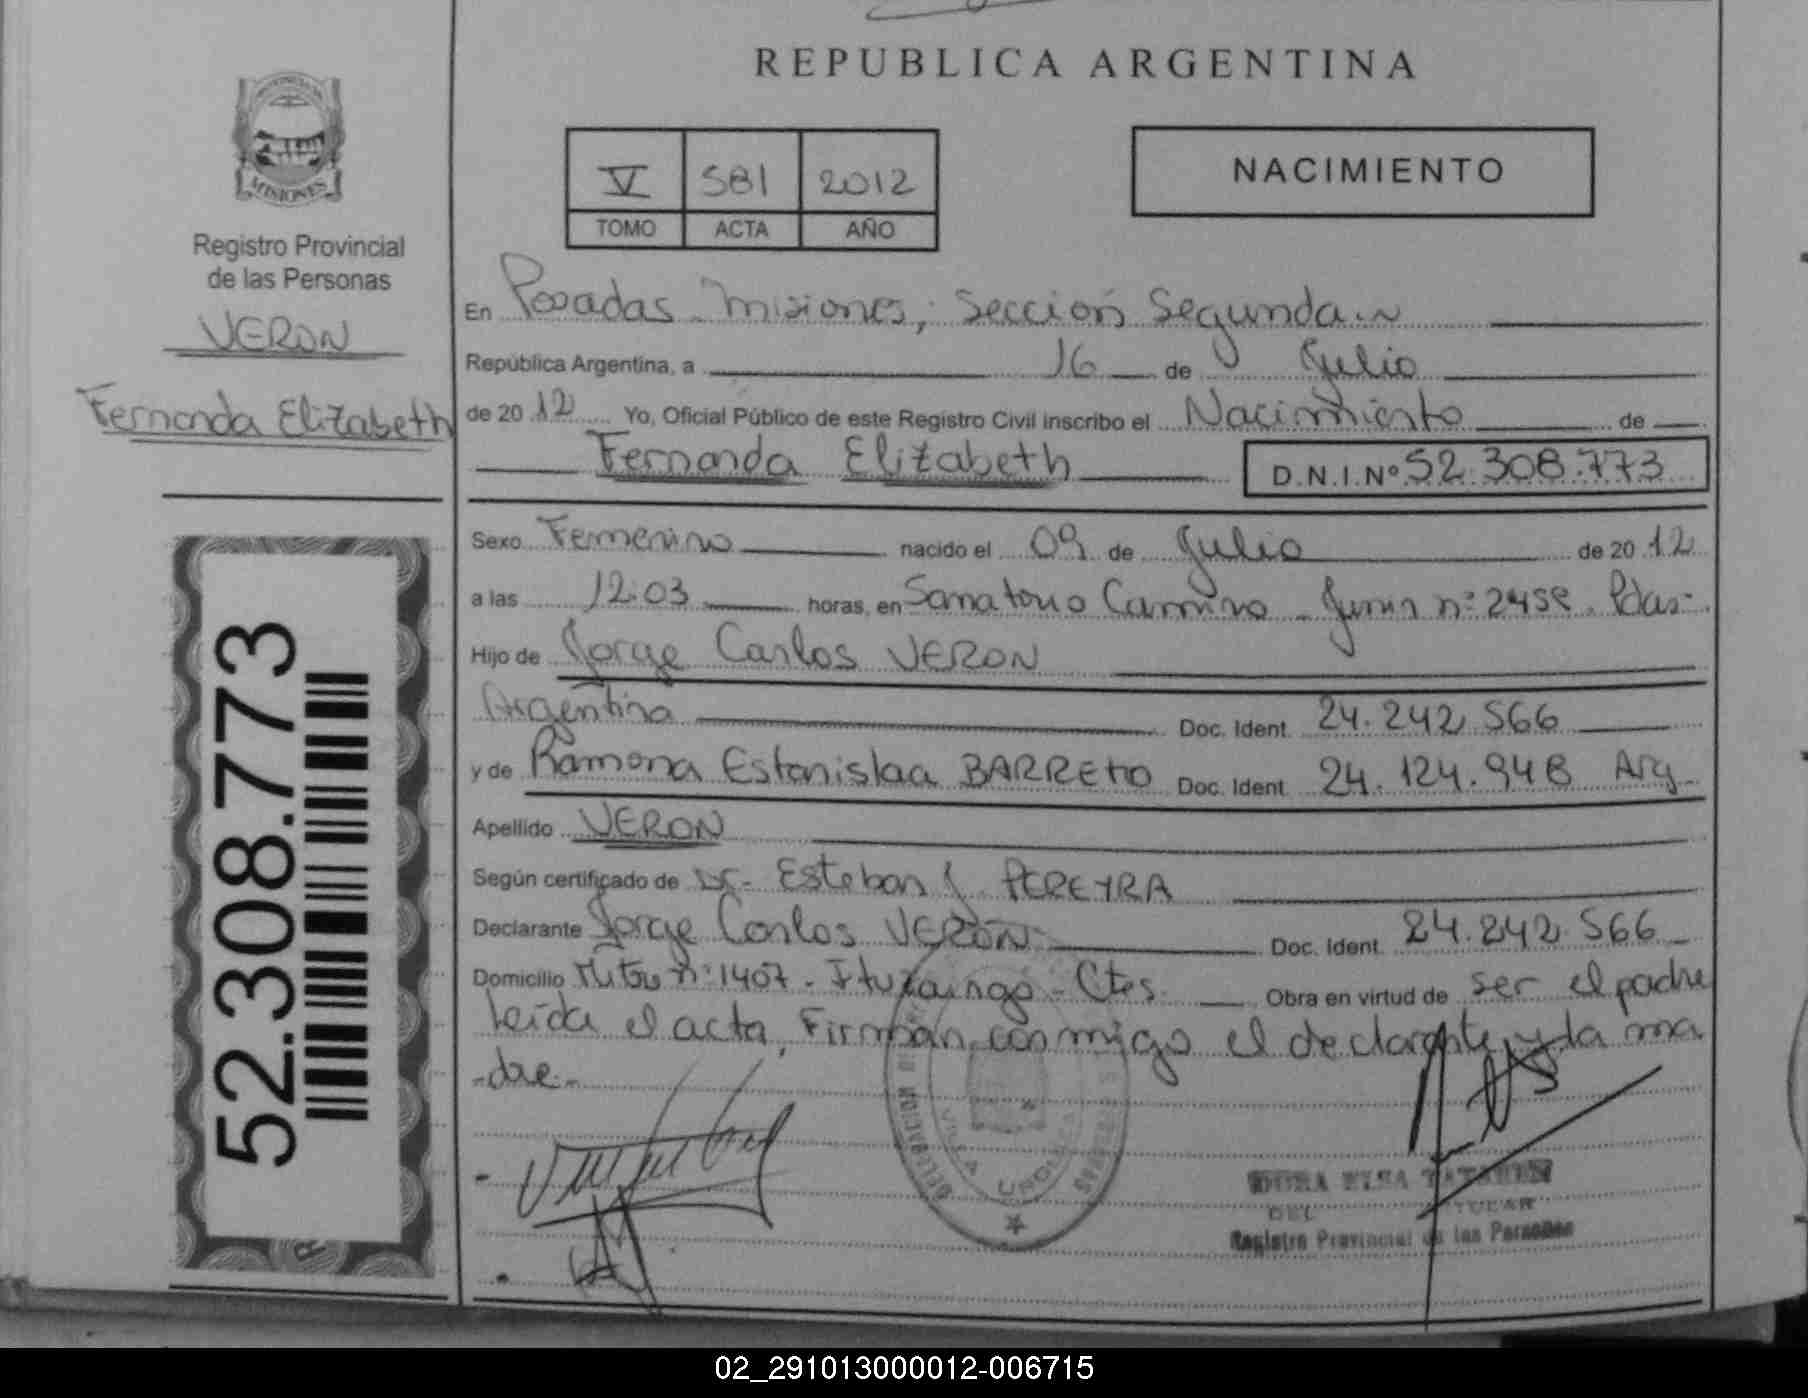 REPUBLICA ARGENTINA
MISIONES
Registro Provincial
de las Personas
VERON
Fernanda Elizabeth
52.308.773
V 581 2012
TOMO ACTA AÑO
NACIMIENTO
En Posadas - Misiones, Sección Segunda
República Argentina, a 16 de Julio
de 2012 Yo, Oficial Público de este Registro Civil inscribo el Nacimiento de
Fernanda Elizabeth D.N.I.Nº 52.308.773
Sexo Femenino nacido el 09 de Julio de 2012
a las 12:03 horas, en Sanatorio Camino - Junin nº Pdas-
Hijo de Jorge Carlos VERON
Argentina Doc. Ident. 24.242.566
y de Ramona Estanislaa BARRETO Doc. Ident. 24.124.948 Arg-
Apellido VERON
Según certificado de Dr. Esteban J. PEREYRA
Declarante Jorge Carlos VERON- Doc. Ident. 24.242.566
Domicilio Mitre nº 1407 - Ituzaingo - Ctes. Obra en virtud de ser el padre
Leída el acta, Firman conmigo el declarante y la ma
-dre-
DELEGACION
VILLA URQUIZA
DORA ELSA
Registro Provincial de las Personas
02_291013000012-006715